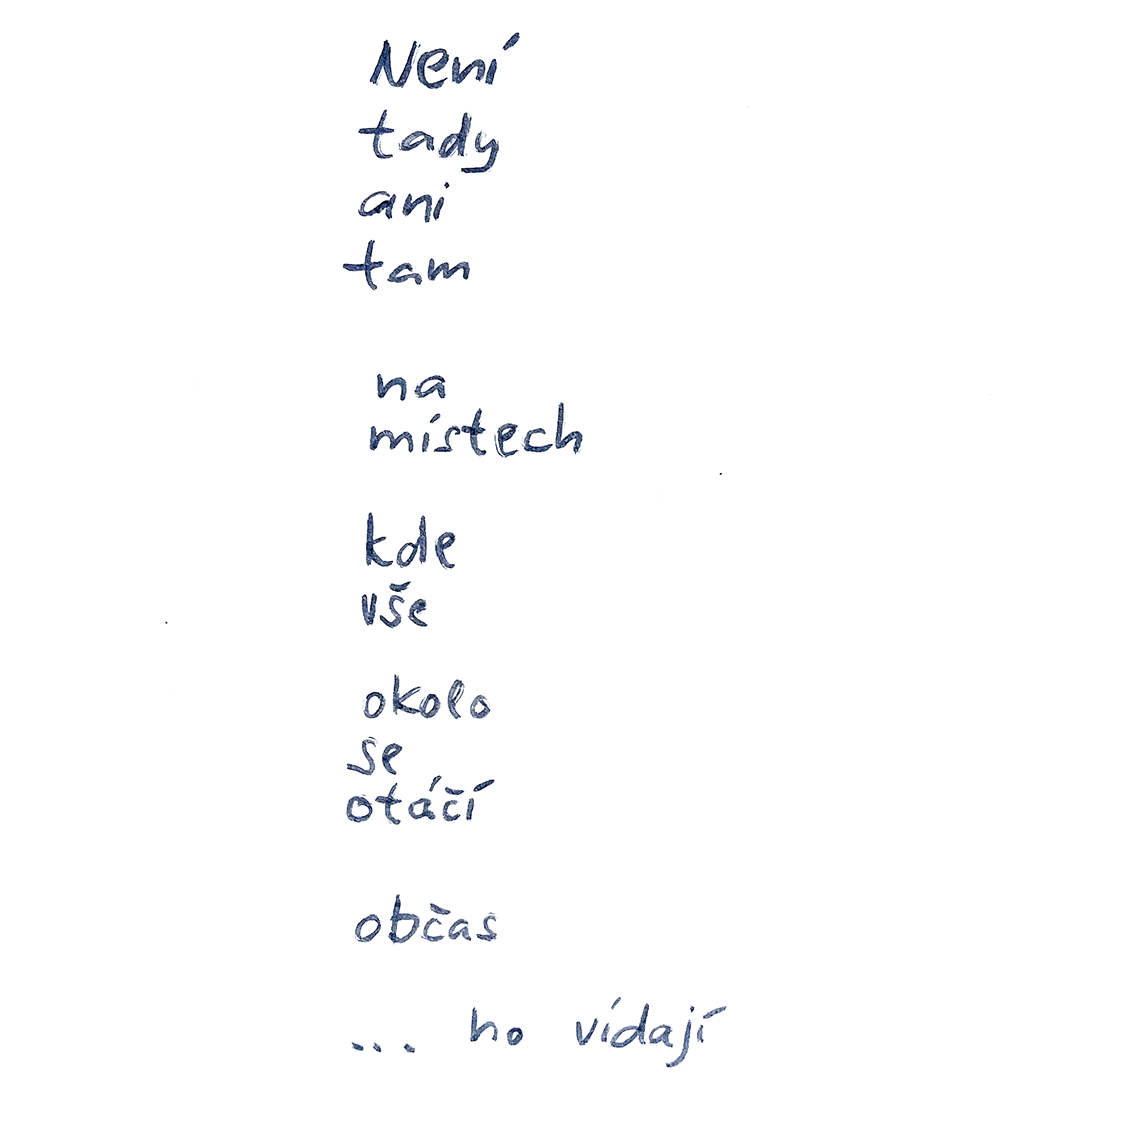 Není
tady
ani
tam
na
místech
kde
vše
okolo
se
otáčí
občas
... ho vídají